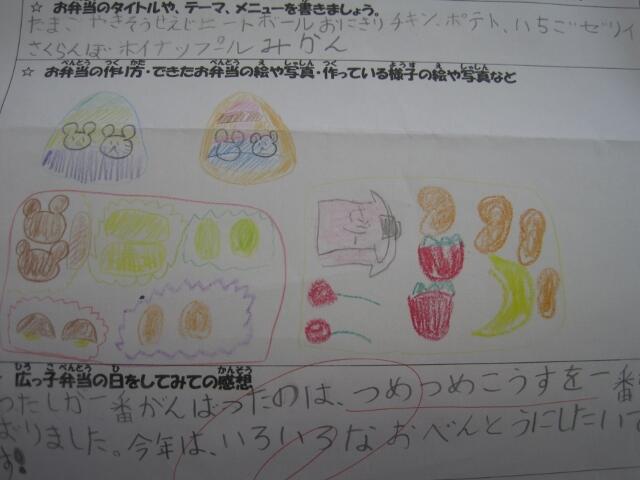 ☆ お弁当のタイトルや、テーマ、メニューを書きましょう。
たまご やきそう せえじ ミートボール おにぎり チキン、ポテト、いちご ゼリイ
さくらんぼ ホイナップール みかん
べんとう つく かた べんとう え しゃしん つく ようす え しゃしん
☆ お弁当の作り方・できたお弁当の絵や写真・作っている様子の絵や写真など
ひろ こ べんとう ひ かんそう
広っ子弁当の日をしてみての感想
一番がんばったのは、つめつめこうすを一番
ました。今年は、いろいろなおべんとうにしたいで
す!